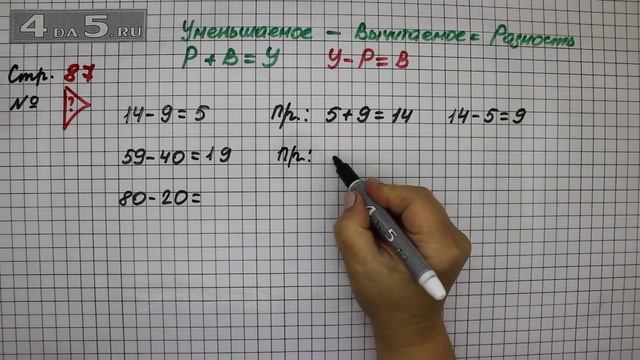 4DA5.RU
Уменьшаемое – Вычитаемое = Разность
Р + В = У У – Р = В
Стр. 87
№ ?
14 – 9 = 5 Пр.: 5 + 9 = 14 14 – 5 = 9
59 – 40 = 19 Пр.:
80 – 20 =
4 DA 5